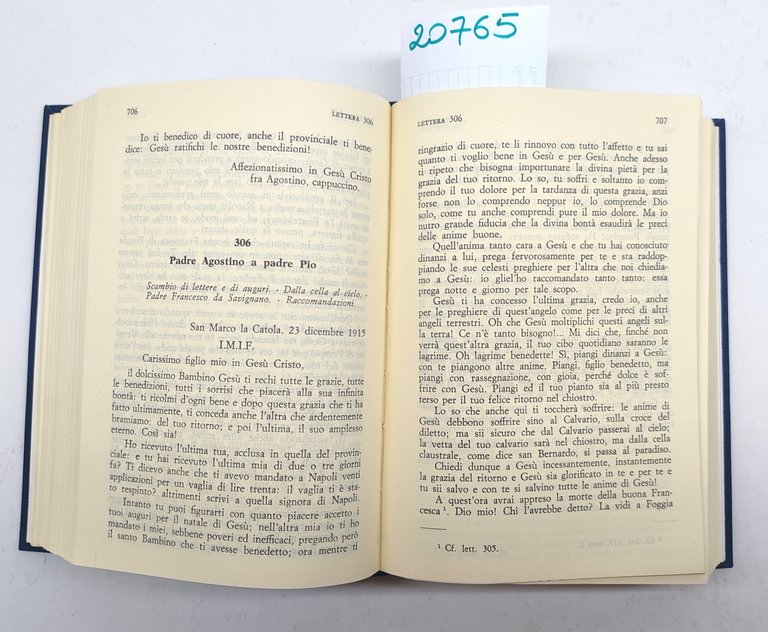 20765
706
LETTERA 306
Io ti benedico di cuore, anche il provinciale ti bene-
dice: Gesù ratifichi le nostre benedizioni!
Affezionatissimo in Gesù Cristo
fra Agostino, cappuccino.
306
Padre Agostino a padre Pio
Scambio di lettere e di auguri. - Dalla cella al cielo. -
Padre Francesco da Savignano. - Raccomandazioni.
San Marco la Catola, 23 dicembre 1915
I.M.I.F.
Carissimo figlio mio in Gesù Cristo,
il dolcissimo Bambino Gesù ti rechi tutte le grazie, tutte
le benedizioni, tutti i sorrisi che piacerà alla sua infinita
bontà: ti ricolmi d'ogni bene e dopo questa grazia che ti ha
fatto ultimamente, ti conceda anche l'altra che ardentemente
bramiamo: del tuo ritorno; e poi l'ultima, il suo amplesso
eterno. Così sia!
Ho ricevuto l'ultima tua, acclusa in quella del provin-
ciale: e tu hai ricevuto l'ultima mia di due o tre giorni
fa? Ti dicevo anche che ti avevo mandato a Napoli venti
applicazioni per un vaglia di lire trenta: il vaglia ti è sta-
to respinto? altrimenti scrivi a quella signora di Napoli.
Intanto tu puoi figurarti con quanto piacere accetto i
tuoi auguri per il natale di Gesù; nell'altra mia io ti ho
mandato i miei, sebbene poveri ed inefficaci, pregando però
il santo Bambino che ti avesse benedetto; ora mentre ti
LETTERA 306
707
ringrazio di cuore, te li rinnovo con tutto l'affetto e tu sai
quanto ti voglio bene in Gesù e per Gesù. Anche adesso
ti ripeto che bisogna importunare la divina pietà per la
grazia del tuo ritorno. Lo so, tu soffri e soltanto io com-
prendo il tuo dolore per la tardanza di questa grazia, anzi
forse non lo comprendo neppur io, lo comprende Dio
solo, come tu anche comprendi pure il mio dolore. Ma io
nutro grande fiducia che la divina bontà esaudirà le preci
delle anime buone.
Quell'anima tanto cara a Gesù e che tu hai conosciuto
dinanzi a lui, prega fervorosamente per te e sta raddop-
piando le sue celesti preghiere per l'altra che noi chiedia-
mo a Gesù: io gliel'ho raccomandato tanto tanto: essa
prega notte e giorno per tale scopo.
Gesù ti ha concesso l'ultima grazia, credo io, anche
per le preghiere di quest'angelo come per le preci di altri
angeli terrestri. Oh che Gesù moltiplichi questi angeli sul-
la terra! Ce n'è tanto bisogno!... Mi dici che, finché non
verrà quest'altra grazia, il tuo cibo quotidiano saranno le
lagrime. Oh lagrime benedette! Sì, piangi dinanzi a Gesù:
con te piangono altre anime. Piangi, figlio benedetto, ma
piangi con rassegnazione, con gioia, perché dolce è sof-
frire con Gesù. Piangi ed il tuo pianto sia al più presto
terso per il tuo felice ritorno nel chiostro.
Lo so che anche qui ti toccherà soffrire: le anime di
Gesù debbono soffrire sino al Calvario, sulla croce del
diletto; ma sii sicuro che dal Calvario passerai al cielo;
la vetta del tuo calvario sarà nel chiostro, ma dalla cella
claustrale, come dice san Bernardo, si passa al paradiso.
Chiedi dunque a Gesù incessantemente, instantemente
la grazia del ritorno e Gesù sia glorificato in te e per te e
tu sii salvo e con te si salvino tutte le anime di Gesù!
A quest'ora avrai appreso la morte della buona Fran-
cesca ¹. Dio mio! Chi l'avrebbe detto? La vidi a Foggia
¹ Cf. lett. 305.